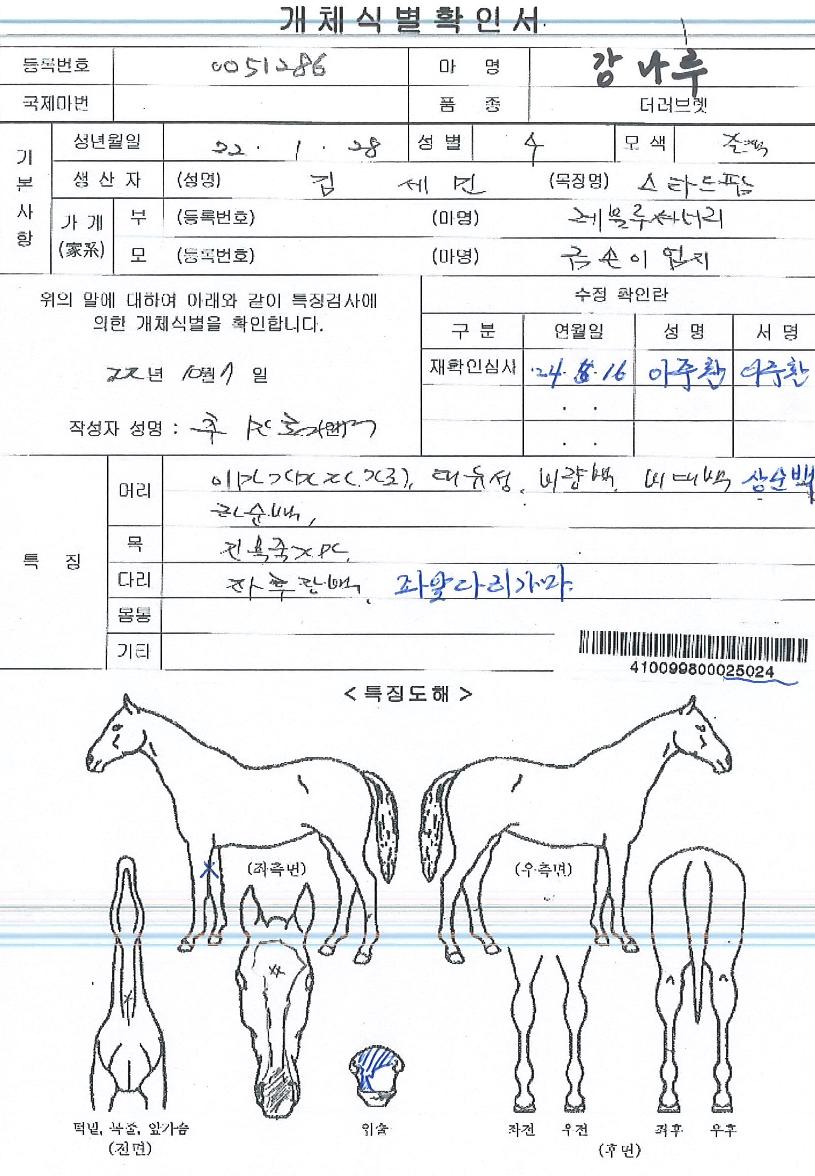 개체식별확인서
등록번호 0051286 마 명 강나루
국제마번 품 종 더러브렛
기본사항
생년월일 22. 1. 28 성별 수 모색
생산자 (성명) 김 세 민 (목장명) 스타드팜
가계(家系) 부 (등록번호) (마명)
모 (등록번호) (마명) 금손이엄지
위의 말에 대하여 아래와 같이 특징검사에
의한 개체식별을 확인합니다.
22년 10월 7일
작성자 성명 :
수정 확인란
구 분 연월일 성 명 서 명
재확인심사 '24. 8. 16 이주환 이주환
. .
. .
특 징
머리 대유성, 비량백, 상순백
하순백,
목
다리 좌앞다리가마
몸통
기타
410099800025024
< 특징도해 >
(좌측면) (우측면)
턱밑, 목줄, 앞가슴
(전면)
위술
좌전 우전 좌후 우후
(후면)